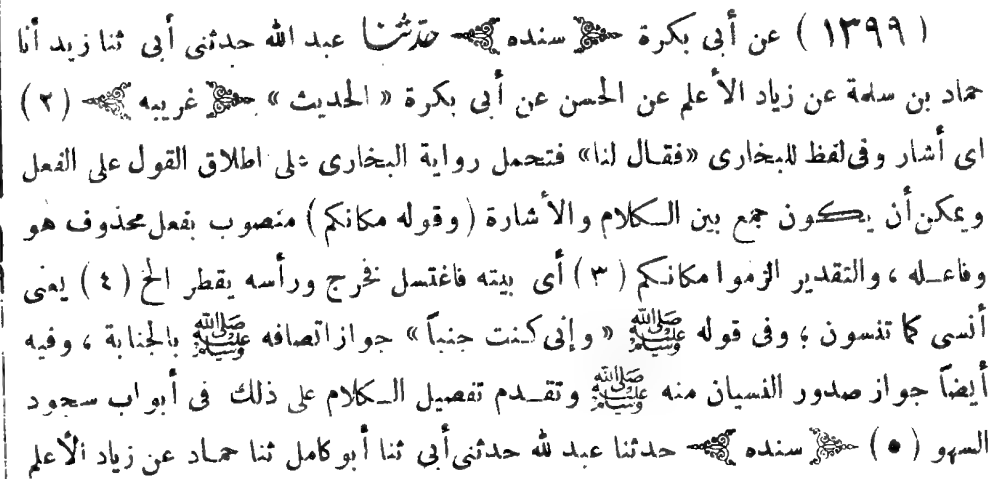 ( ١٣٩٩ ) عن أبى بكرة ﴿ سنده ﴾ حدّثنا عبد الله حدثنى أبى ثنا زيد أنا
حماد بن سلمة عن زياد الأعلم عن الحسن عن أبى بكرة « الحديث » ﴿ غريبه ﴾ (٢)
اى أشار وفى لفظ للبخارى «فقال لنا» فتحمل رواية البخارى على اطلاق القول على الفعل
ويمكن أن يكون جمع بين الكلام والأشارة (وقوله مكانكم) منصوب بفعل محذوف هو
وفاعله ، والتقدير الزموا مكانكم (٣) أى بيته فاغتسل فخرج ورأسه يقطر الخ (٤) يعنى
أنسى كما تنسون ؛ وفى قوله ﷺ « وإنى كنت جنباً » جواز اتصافه ﷺ بالجنابة ، وفيه
أيضاً جواز صدور النسيان منه ﷺ وتقدم تفصيل الكلام على ذلك فى أبواب سجود
السهو (٥) ﴿ سنده ﴾ حدثنا عبد لله حدثنى أبى ثنا أبو كامل ثنا حماد عن زياد الأعلم